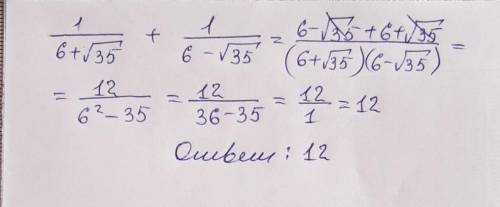 1/(6+√35) + 1/(6-√35) = (6-√35+6+√35)/((6+√35)(6-√35)) =
= 12/(6²-35) = 12/(36-35) = 12/1 = 12
Ответ: 12